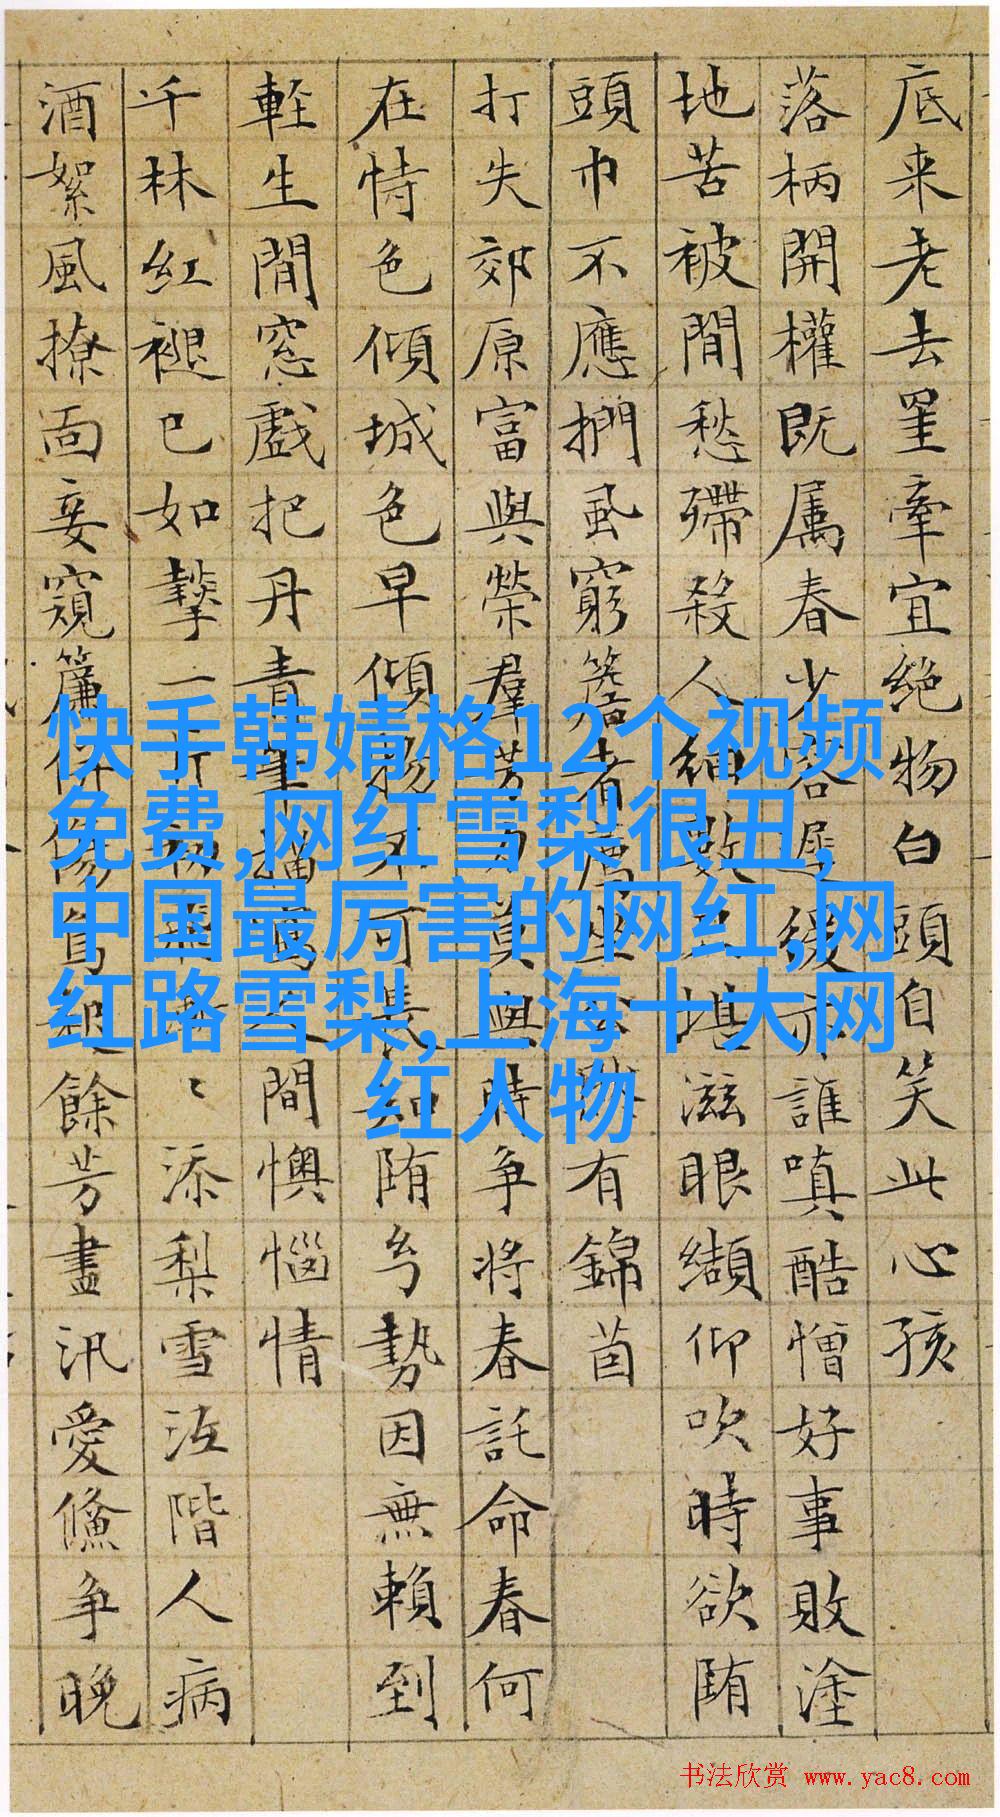 底来老去罣牵宜绝物白頭自笑此心孩
落柄開權既属春少容遲緩示誰嗔酷憎好事敗塗
地苦被閒愁殢殺人細數堪滋眼纈仰吹時欲陏
頭巾不應捫虱窮簷者有錦茵
打失郊原富與榮羣芳莫與時争将春託命春何
在恃色傾城色早傾物不可長知陏兮勢因無賴到
輊生閒窓戲把丹青筆描寫人間懊惱情
千林紅褪已如摮一片添梨雪泣階人病
酒絮風撩面妾窺簾餘芳盡汛愛儵争晚
快手韩婧格12个视频
免费,网红雪梨很丑,
中国最厉害的网红,网
红路雪梨,上海十大网
红人物
书法欣赏 www.yac8.com